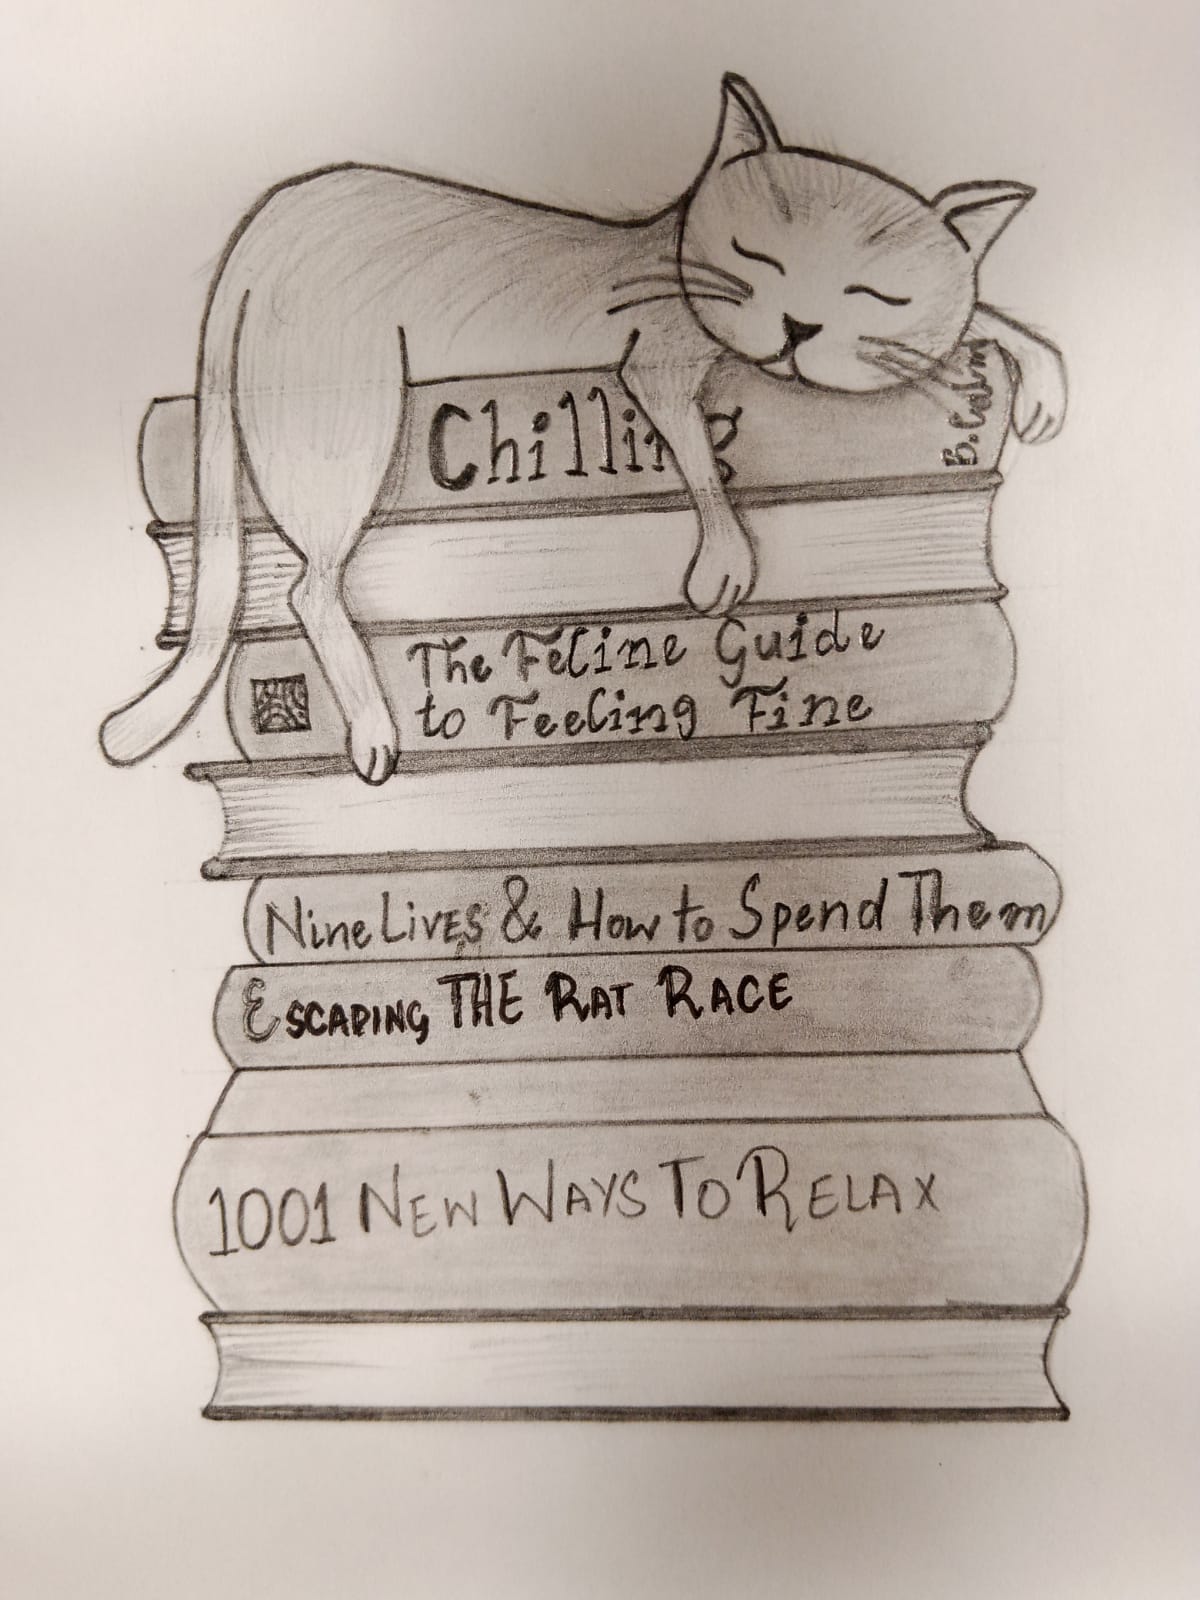 Chilling
B. Calm
The Feline Guide
to Feeling Fine
Nine Lives & How to Spend Them
Escaping THE RAT RACE
1001 NEW WAYS TO RELAX